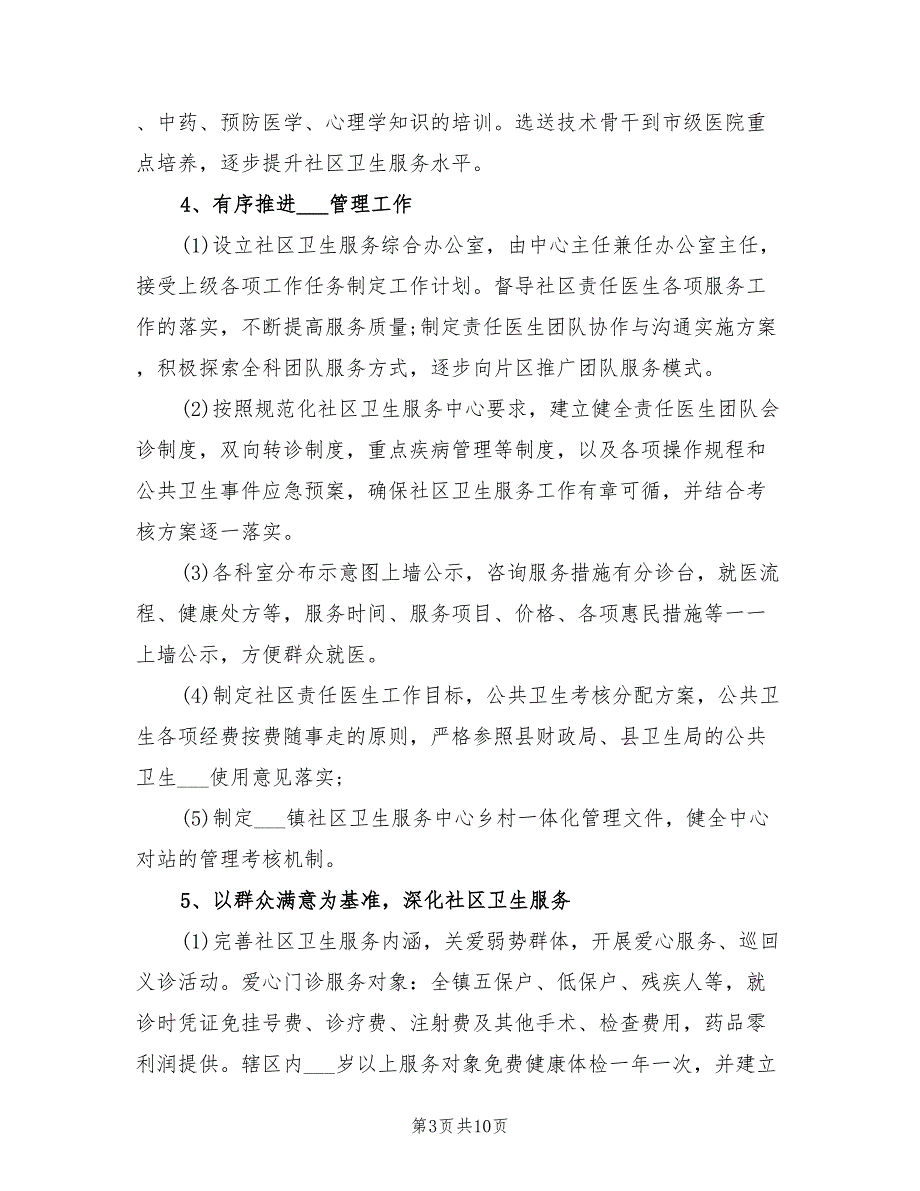 、中药、预防医学、心理学知识的培训。选送技术骨干到市级医院重
点培养，逐步提升社区卫生服务水平。
4、有序推进___管理工作
(1)设立社区卫生服务综合办公室，由中心主任兼任办公室主任，
接受上级各项工作任务制定工作计划。督导社区责任医生各项服务工
作的落实，不断提高服务质量;制定责任医生团队协作与沟通实施方案
，积极探索全科团队服务方式，逐步向片区推广团队服务模式。
(2)按照规范化社区卫生服务中心要求，建立健全责任医生团队会
诊制度，双向转诊制度，重点疾病管理等制度，以及各项操作规程和
公共卫生事件应急预案，确保社区卫生服务工作有章可循，并结合考
核方案逐一落实。
(3)各科室分布示意图上墙公示，咨询服务措施有分诊台，就医流
程、健康处方等，服务时间、服务项目、价格、各项惠民措施等一一
上墙公示，方便群众就医。
(4)制定社区责任医生工作目标，公共卫生考核分配方案，公共卫
生各项经费按费随事走的原则，严格参照县财政局、县卫生局的公共
卫生___使用意见落实;
(5)制定___镇社区卫生服务中心乡村一体化管理文件，健全中心
对站的管理考核机制。
5、以群众满意为基准，深化社区卫生服务
(1)完善社区卫生服务内涵，关爱弱势群体，开展爱心服务、巡回
义诊活动。爱心门诊服务对象：全镇五保户、低保户、残疾人等，就
诊时凭证免挂号费、诊疗费、注射费及其他手术、检查费用，药品零
利润提供。辖区内___岁以上服务对象免费健康体检一年一次，并建立
第3页共10页